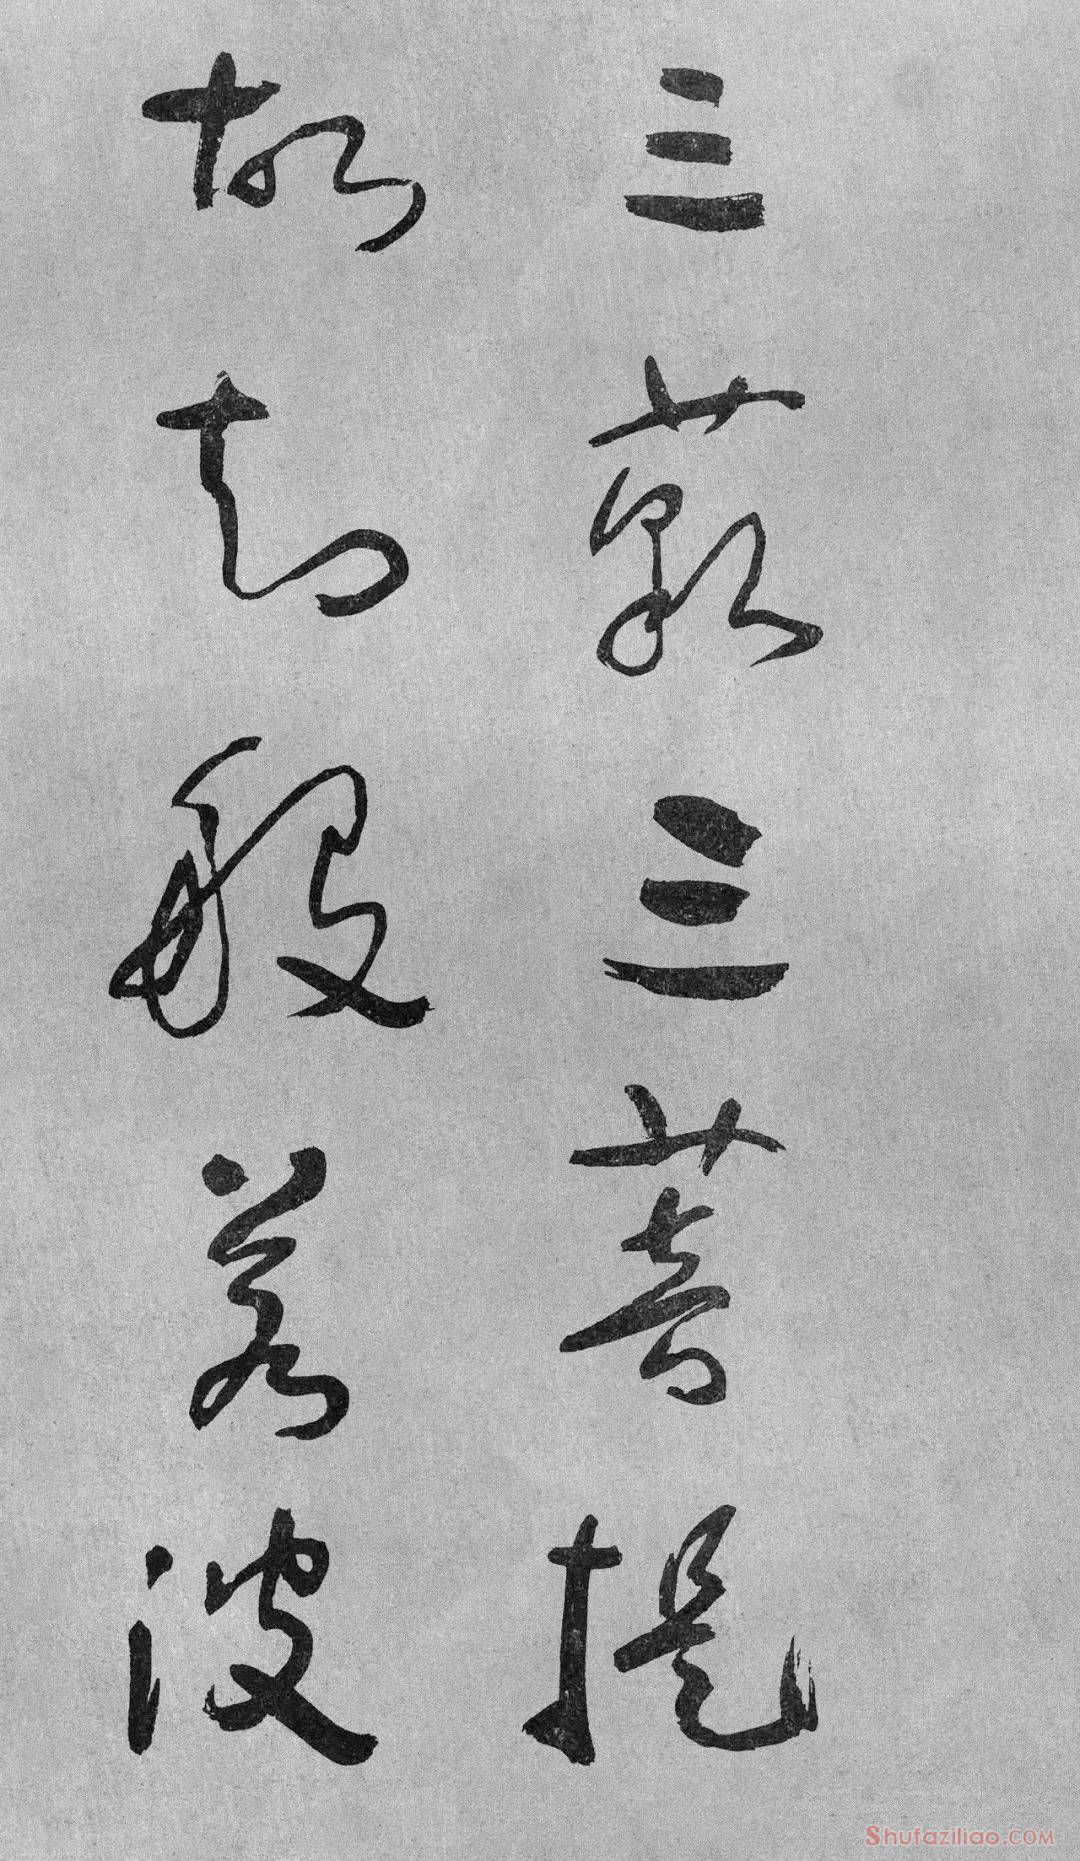 三藐三菩提
故知般若波
Shufaziliao.COM